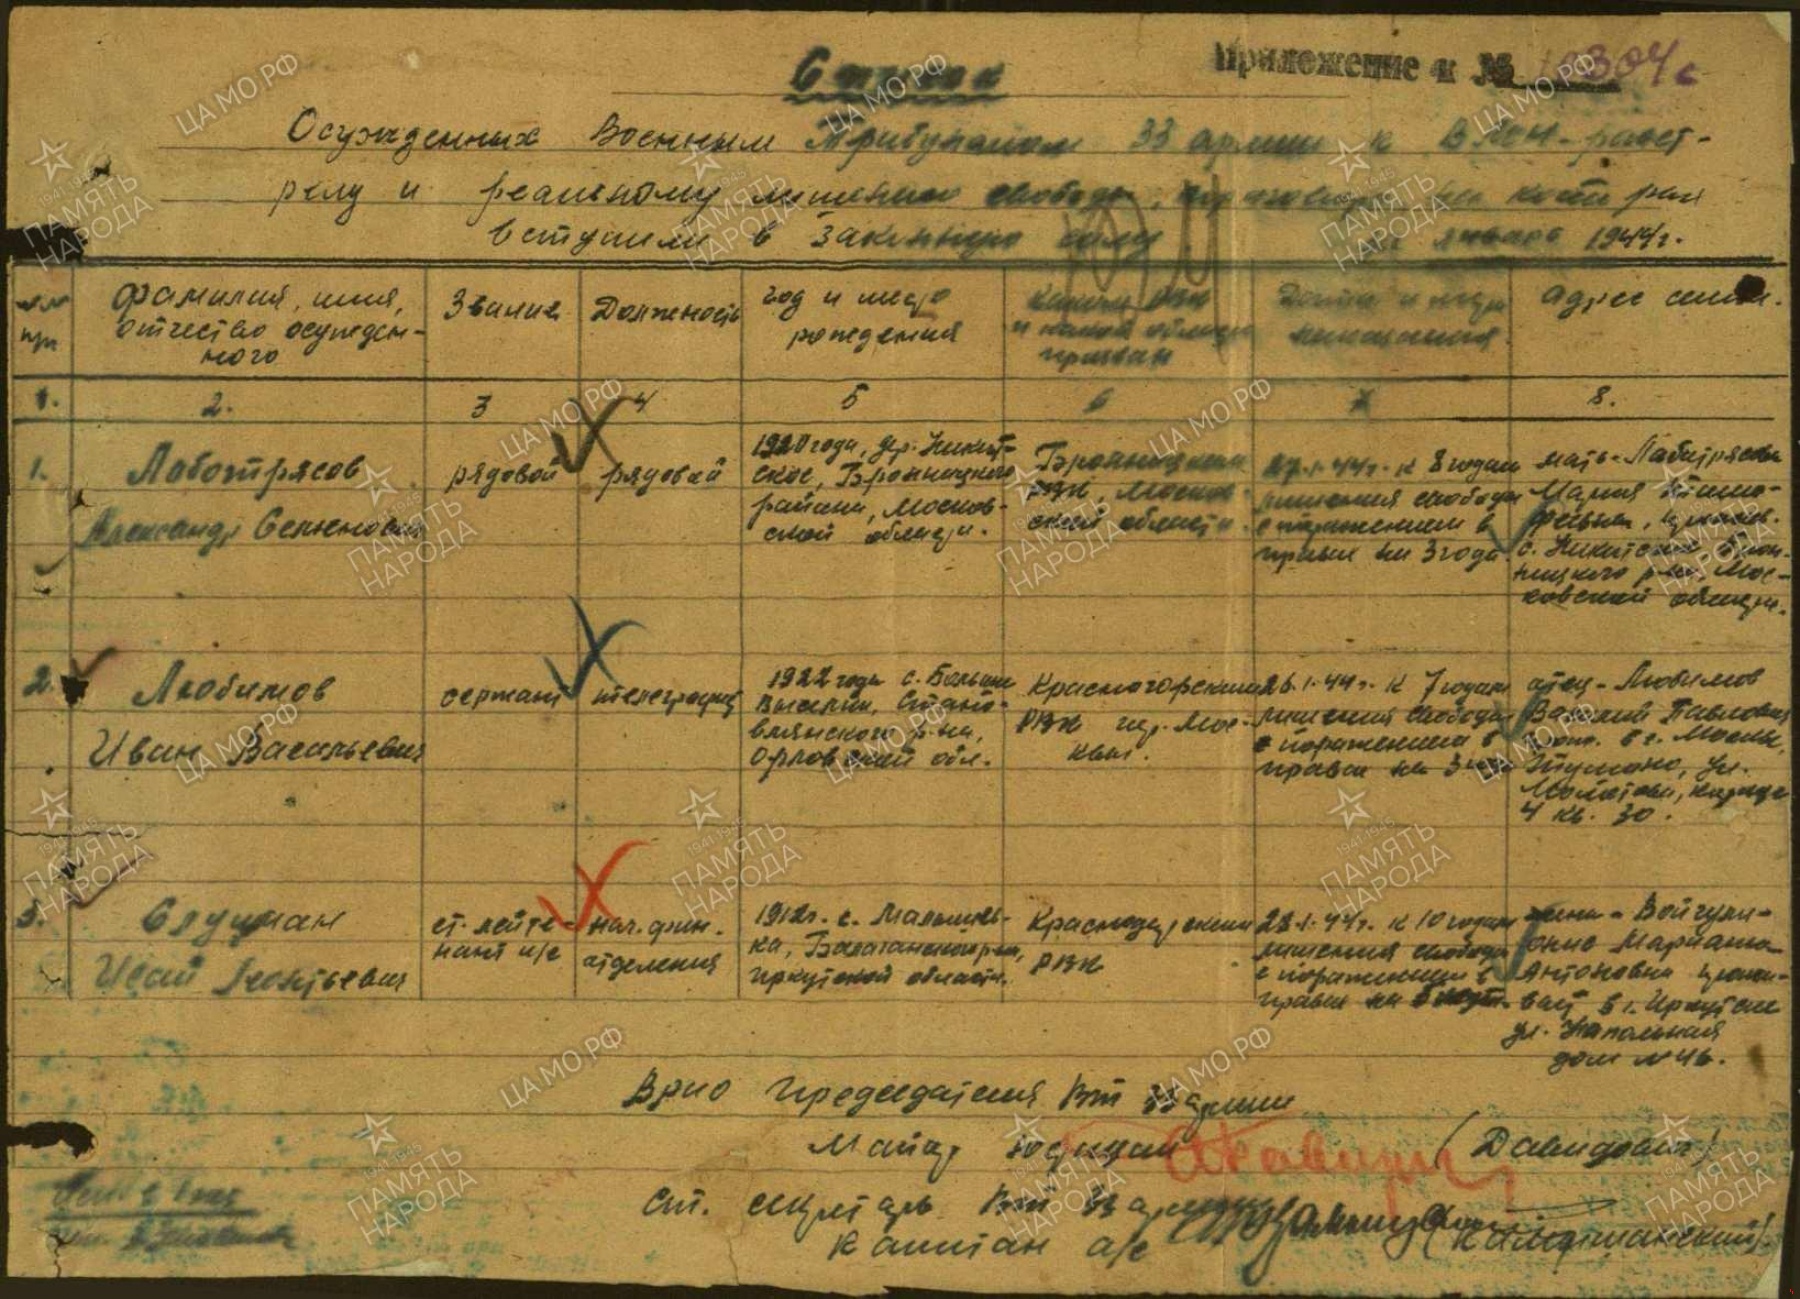 Список
Приложение к № 10304с
Осужденных Военным Трибуналом 33 армии к ВМН-расст-
релу и реальному лишению свободы, приговора на которых
вступили в законную силу январь 1944г.
№№
п/п
фамилия, имя,
отчество осужден-
ного
Звание
Должность
год и место
рождения
Каким РВК
и какой области
призван
Адрес семьи.
1.
2.
3
4
5
6
7
8.
1.
Лоботрясов
Александр Семенович
рядовой
рядовой
1920 года, дер. Никит-
ское, Бронницкого
района, Москов-
ской области.
Бронницким
РВК, Москов-
ской области.
27.1.44г. к 8 годам
лишения свободы
с поражением в
правах на 3 года
мать - Лоботрясова
Мария Тимо-
феевна, прожив.
с. Никитское Брон-
ницкого р-на, Мос-
ковской области.
2.
Любимов
Иван Васильевич
сержант
телеграфист
1922 года с. Большие
Выселки, Стано-
влянского р-на,
Орловской обл.
Красногорским
РВК гор. Мос-
квы.
26.1.44г. к 7 годам
лишения свободы
с поражением в
правах на 3 года
отец - Любимов
Василий Павлович
прож. в г. Москва,
Тушино, ул.
Молотова, корпус
4 кв. 30.
3.
Слуцман
Исай Леонтьевич
ст. лейте-
нант и/с
нач. фин.
отделения
1912г. с. Малышев-
ка, Балаганского р-на,
Иркутской области.
Краснодарским
РВК
28.1.44г. к 10 годам
лишения свободы
с поражением в
правах на
жена - Войчули-
онис Марианна
Антоновна прожи-
вает в г. Иркутске
ул. Напольная
дом №46.
Врио Председателя ВТ 33 армии
Майор юстиции
(Давидович)
Ст. секретарь ВТ 33 армии
Капитан а/с